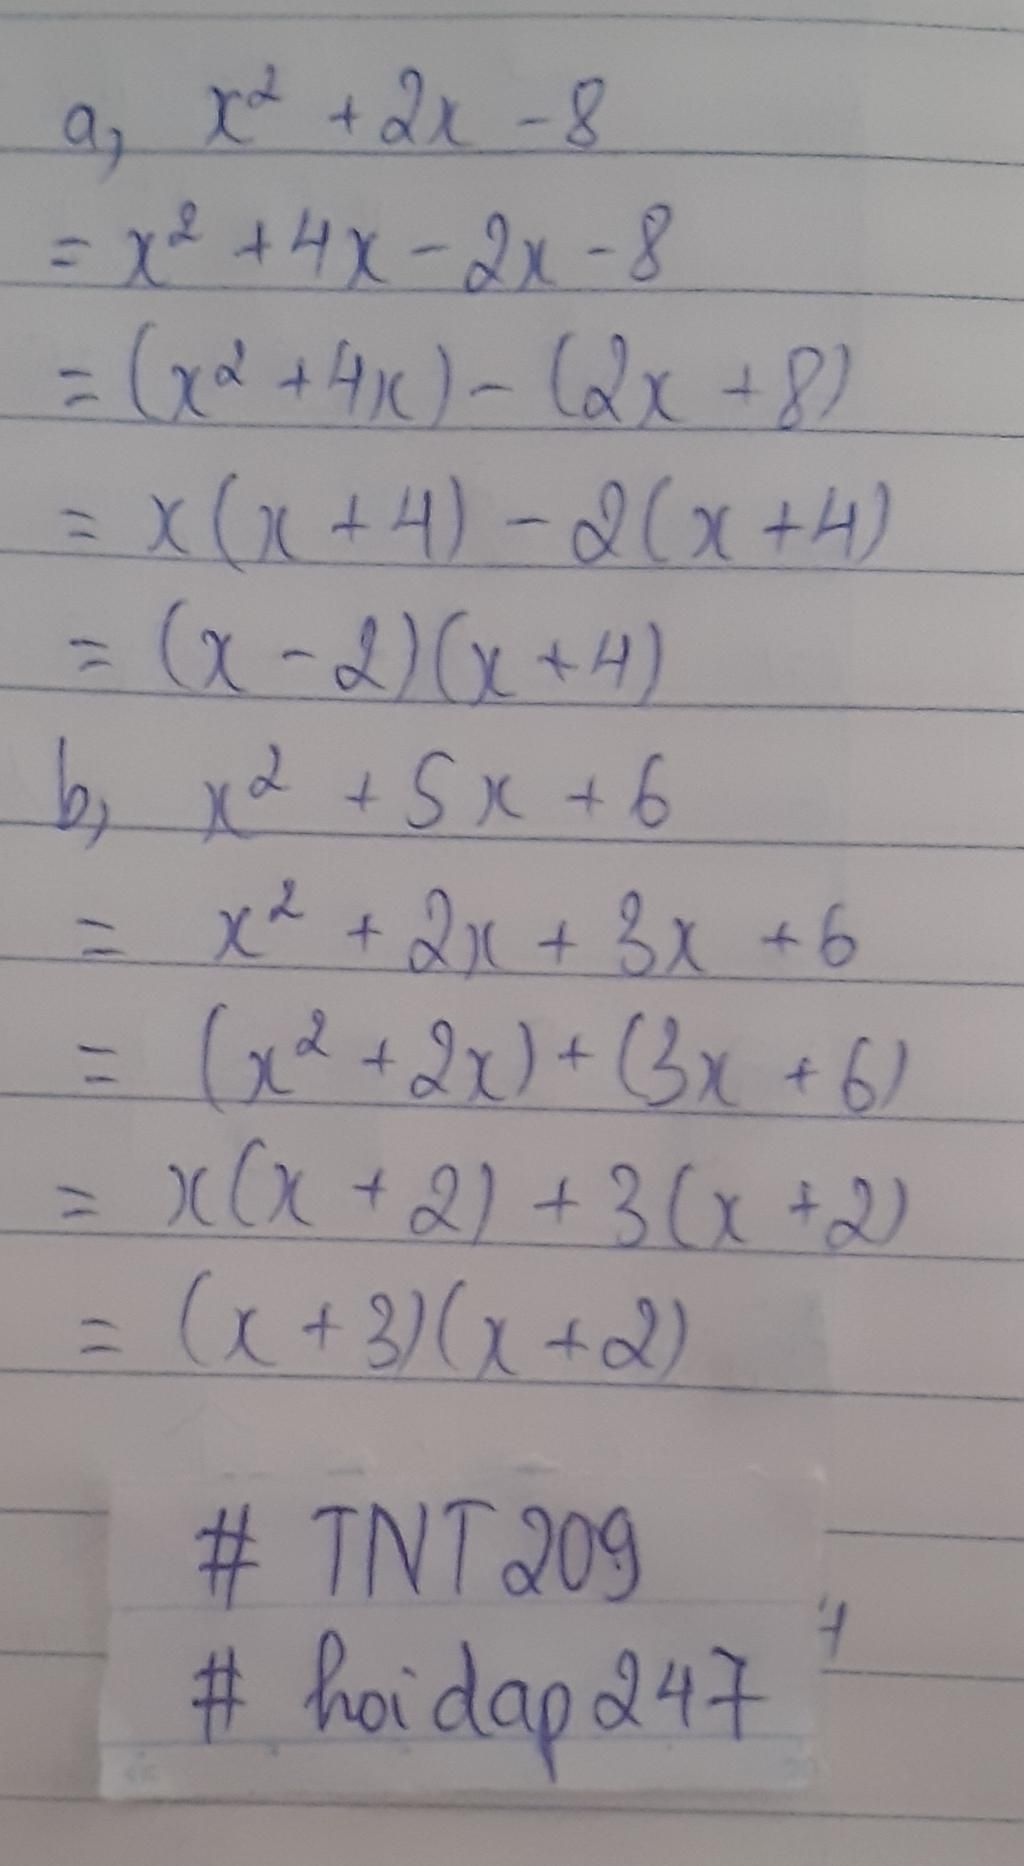 a, x² + 2x - 8
= x² + 4x - 2x - 8
= (x² + 4x) - (2x + 8)
= x(x + 4) - 2(x + 4)
= (x - 2)(x + 4)
b, x² + 5x + 6
= x² + 2x + 3x + 6
= (x² + 2x) + (3x + 6)
= x(x + 2) + 3(x + 2)
= (x + 3)(x + 2)
# TNT209
# hoidap247